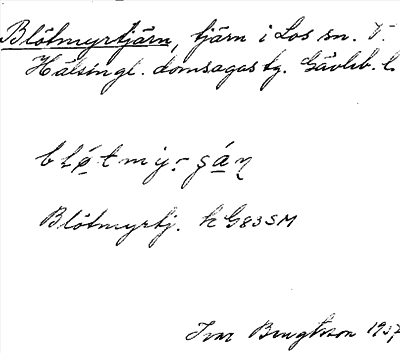 Blötmyrtjärn, tjärn i Los sn. V.
Hälsingl. domsagas tg. Gävleb. l.
blø̄tmy:r-ṣạ́ṇ
Blötmyrtj. k G83SM
Ivar Bengtsson 1937